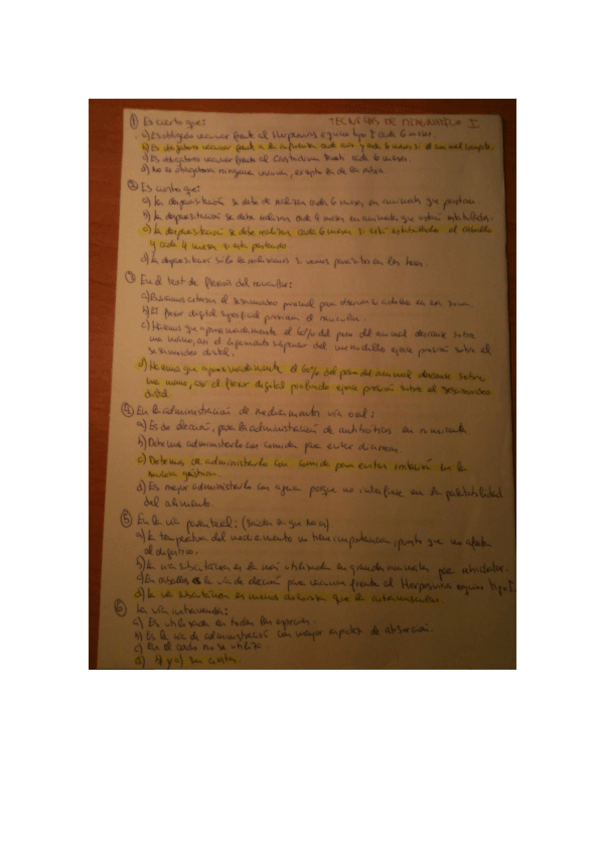 ① Es cierto que: TECNICAS DE DIAGNOSTICO I
a) Es obligado vacunar frente al Herpesvirus equino tipo I cada 6 meses.
b) Es obligatorio vacunar frente a la influenza cada año y cada 6 meses si el animal compite.
c) Es obligatorio vacunar frente al Clostridium cada 6 meses.
d) No es obligatoria ninguna vacuna, excepto la de la rabia.
② Es cierto que:
a) La desparasitación se debe de realizar cada 6 meses en animales que pastan.
b) La desparasitación se debe realizar cada 4 meses en animales que están estabulados.
c) La desparasitación se debe realizar cada 6 meses si está estabulado el caballo
y cada 4 meses si está pastando
d) La desparasitación solo la realizamos si vemos parásitos en las heces.
③ En el test de flexión del navicular:
a) el sesamoideo proximal para
b) El flexor digital superficial presiona el navicular.
c) Hacemos que aproximadamente el 60% del peso del animal descanse sobre
una mano, así el ligamento superior del menudillo ejerce presión sobre el
sesamoideo distal.
d) Hacemos que aproximadamente el 60% del peso del animal descanse sobre
una mano, así el flexor digital profundo ejerce presión sobre el sesamoideo
distal
④ En la administración de medicamentos vía oral:
a) Es de elección, para la administración de antibióticos en rumiante
b) Debemos administrarlo con comida para evitar diarreas.
c) Debemos de administrarlo con comida para evitar irritación en la
mucosa gástrica.
d) Es mejor administrarlo con agua porque no interfiere en la palatabilidad
del alimento.
⑤ En la vía parenteral:
a) La temperatura del medicamento no tiene importancia, puesto que no afecta
al digestivo.
b) La vía subcutánea es la más utilizada en grandes animales
c) En caballos es la vía de elección para vacunar frente al Herpesvirus equino tipo I.
d) La vía subcutánea es menos dolorosa que la intramuscular.
⑥ La vía intravenosa:
a) Es utilizada en todas las especies.
b) Es la vía de administración con mayor rapidez de absorción.
c) En el cerdo no se utiliza
d) y c) son ciertas.